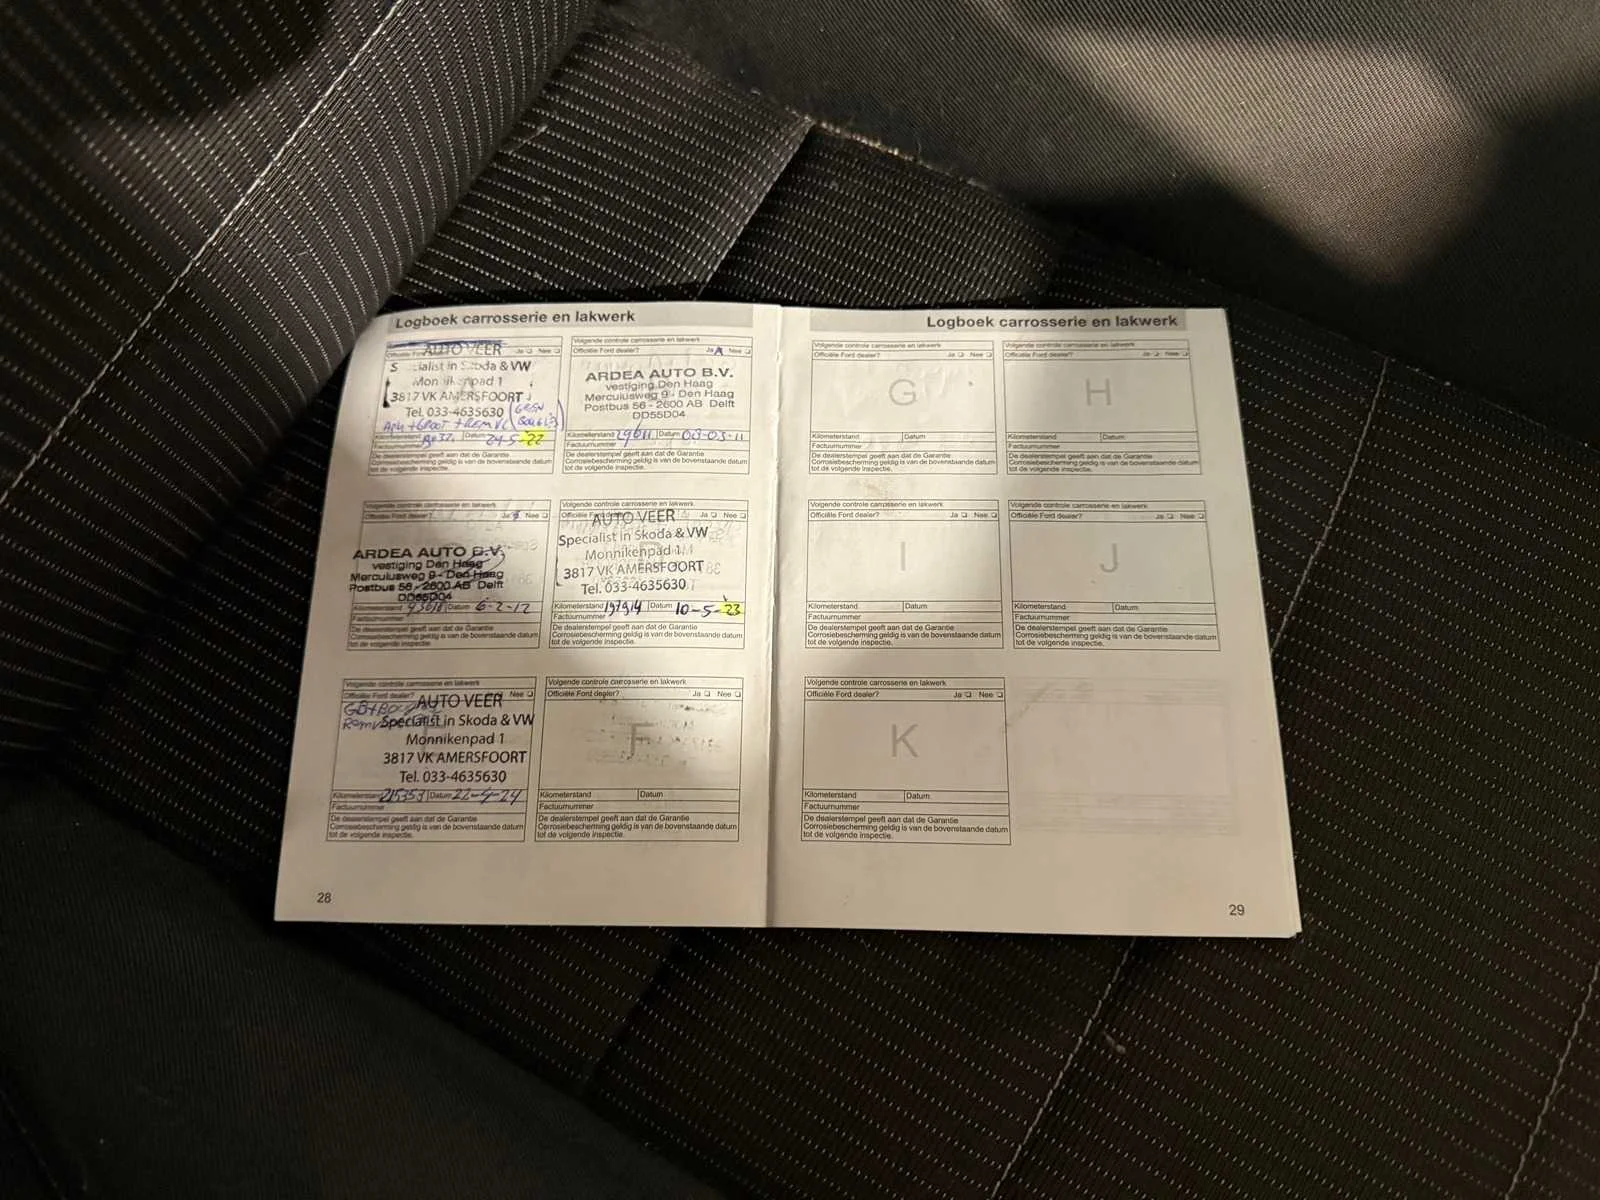 Logboek carrosserie en lakwerk
AUTO VEER
Officiële Ja Nee
Specialist in Skoda & VW
Monnikenpad 1
3817 VK AMERSFOORT
Tel. 033-4635630
Kilometerstand Datum 24-5-22
Factuurnummer
De dealerstempel geeft aan dat de Garantie
Corrosiebescherming geldig is van de bovenstaande datum
tot de volgende inspectie.
Volgende controle carrosserie en lakwerk
Officiële Ford dealer? Ja Nee
ARDEA AUTO B.V.
vestiging Den Haag
Mercuriusweg 9 - Den Haag
Postbus 56 - 2600 AB Delft
DD55D04
Kilometerstand 29611 Datum 03-11
Factuurnummer
De dealerstempel geeft aan dat de Garantie
Corrosiebescherming geldig is van de bovenstaande datum
tot de volgende inspectie.
Volgende controle carrosserie en lakwerk
Officiële Ford dealer? Ja Nee
ARDEA AUTO B.V.
vestiging Den Haag
Mercuriusweg 9 - Den Haag
Postbus 56 - 2600 AB Delft
DD55D04
Kilometerstand Datum 6-2-12
Factuurnummer
De dealerstempel geeft aan dat de Garantie
Corrosiebescherming geldig is van de bovenstaande datum
tot de volgende inspectie.
Volgende controle carrosserie en lakwerk
Officiële Ford Ja Nee
AUTO VEER
Specialist in Skoda & VW
Monnikenpad 1
3817 VK AMERSFOORT
Tel. 033-4635630
Kilometerstand 197914 Datum 10-5-23
Factuurnummer
De dealerstempel geeft aan dat de Garantie
Corrosiebescherming geldig is van de bovenstaande datum
tot de volgende inspectie.
Volgende controle carrosserie en lakwerk
Officiële Ford dealer? Nee
AUTO VEER
Specialist in Skoda & VW
Monnikenpad 1
3817 VK AMERSFOORT
Tel. 033-4635630
Kilometerstand 215353 Datum 22-4-24
Factuurnummer
De dealerstempel geeft aan dat de Garantie
Corrosiebescherming geldig is van de bovenstaande datum
tot de volgende inspectie.
Volgende controle carrosserie en lakwerk
Officiële Ford dealer? Ja Nee
F
Kilometerstand Datum
Factuurnummer
De dealerstempel geeft aan dat de Garantie
Corrosiebescherming geldig is van de bovenstaande datum
tot de volgende inspectie.
28
Logboek carrosserie en lakwerk
Volgende controle carrosserie en lakwerk
Officiële Ford dealer? Ja Nee
G
Kilometerstand Datum
Factuurnummer
De dealerstempel geeft aan dat de Garantie
Corrosiebescherming geldig is van de bovenstaande datum
tot de volgende inspectie.
Volgende controle carrosserie en lakwerk
Officiële Ford dealer? Ja Nee
H
Kilometerstand Datum
Factuurnummer
De dealerstempel geeft aan dat de Garantie
Corrosiebescherming geldig is van de bovenstaande datum
tot de volgende inspectie.
Volgende controle carrosserie en lakwerk
Officiële Ford dealer? Ja Nee
I
Kilometerstand Datum
Factuurnummer
De dealerstempel geeft aan dat de Garantie
Corrosiebescherming geldig is van de bovenstaande datum
tot de volgende inspectie.
Volgende controle carrosserie en lakwerk
Officiële Ford dealer? Ja Nee
J
Kilometerstand Datum
Factuurnummer
De dealerstempel geeft aan dat de Garantie
Corrosiebescherming geldig is van de bovenstaande datum
tot de volgende inspectie.
Volgende controle carrosserie en lakwerk
Officiële Ford dealer? Ja Nee
K
Kilometerstand Datum
Factuurnummer
De dealerstempel geeft aan dat de Garantie
Corrosiebescherming geldig is van de bovenstaande datum
tot de volgende inspectie.
29